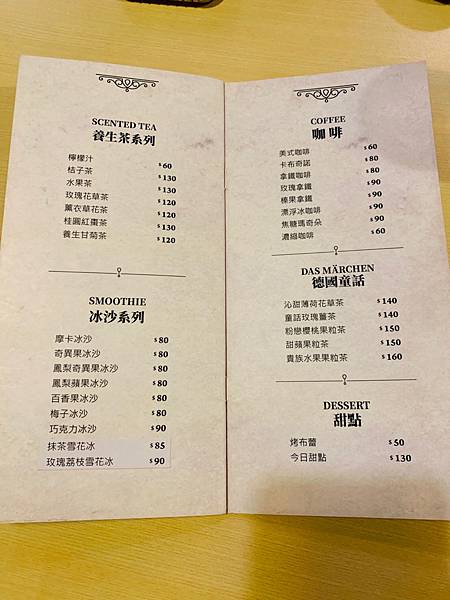 SCENTED TEA
養生茶系列
檸檬汁 $60
桔子茶 $130
水果茶 $130
玫瑰花草茶 $120
薰衣草花茶 $120
桂圓紅棗茶 $130
養生甘菊茶 $120
SMOOTHIE
冰沙系列
摩卡冰沙 $80
奇異果冰沙 $80
鳳梨奇異果冰沙 $80
鳳梨蘋果冰沙 $80
百香果冰沙 $80
梅子冰沙 $80
巧克力冰沙 $90
抹茶雪花冰 $85
玫瑰荔枝雪花冰 $90
COFFEE
咖啡
美式咖啡 $60
卡布奇諾 $80
拿鐵咖啡 $80
玫瑰拿鐵 $90
榛果拿鐵 $90
漂浮冰咖啡 $90
焦糖瑪奇朵 $90
濃縮咖啡 $60
DAS MÄRCHEN
德國童話
沁甜薄荷花草茶 $140
童話玫瑰薑茶 $140
粉戀櫻桃果粒茶 $150
甜蘋果粒茶 $150
貴族水果果粒茶 $160
DESSERT
甜點
烤布蕾 $50
今日甜點 $130